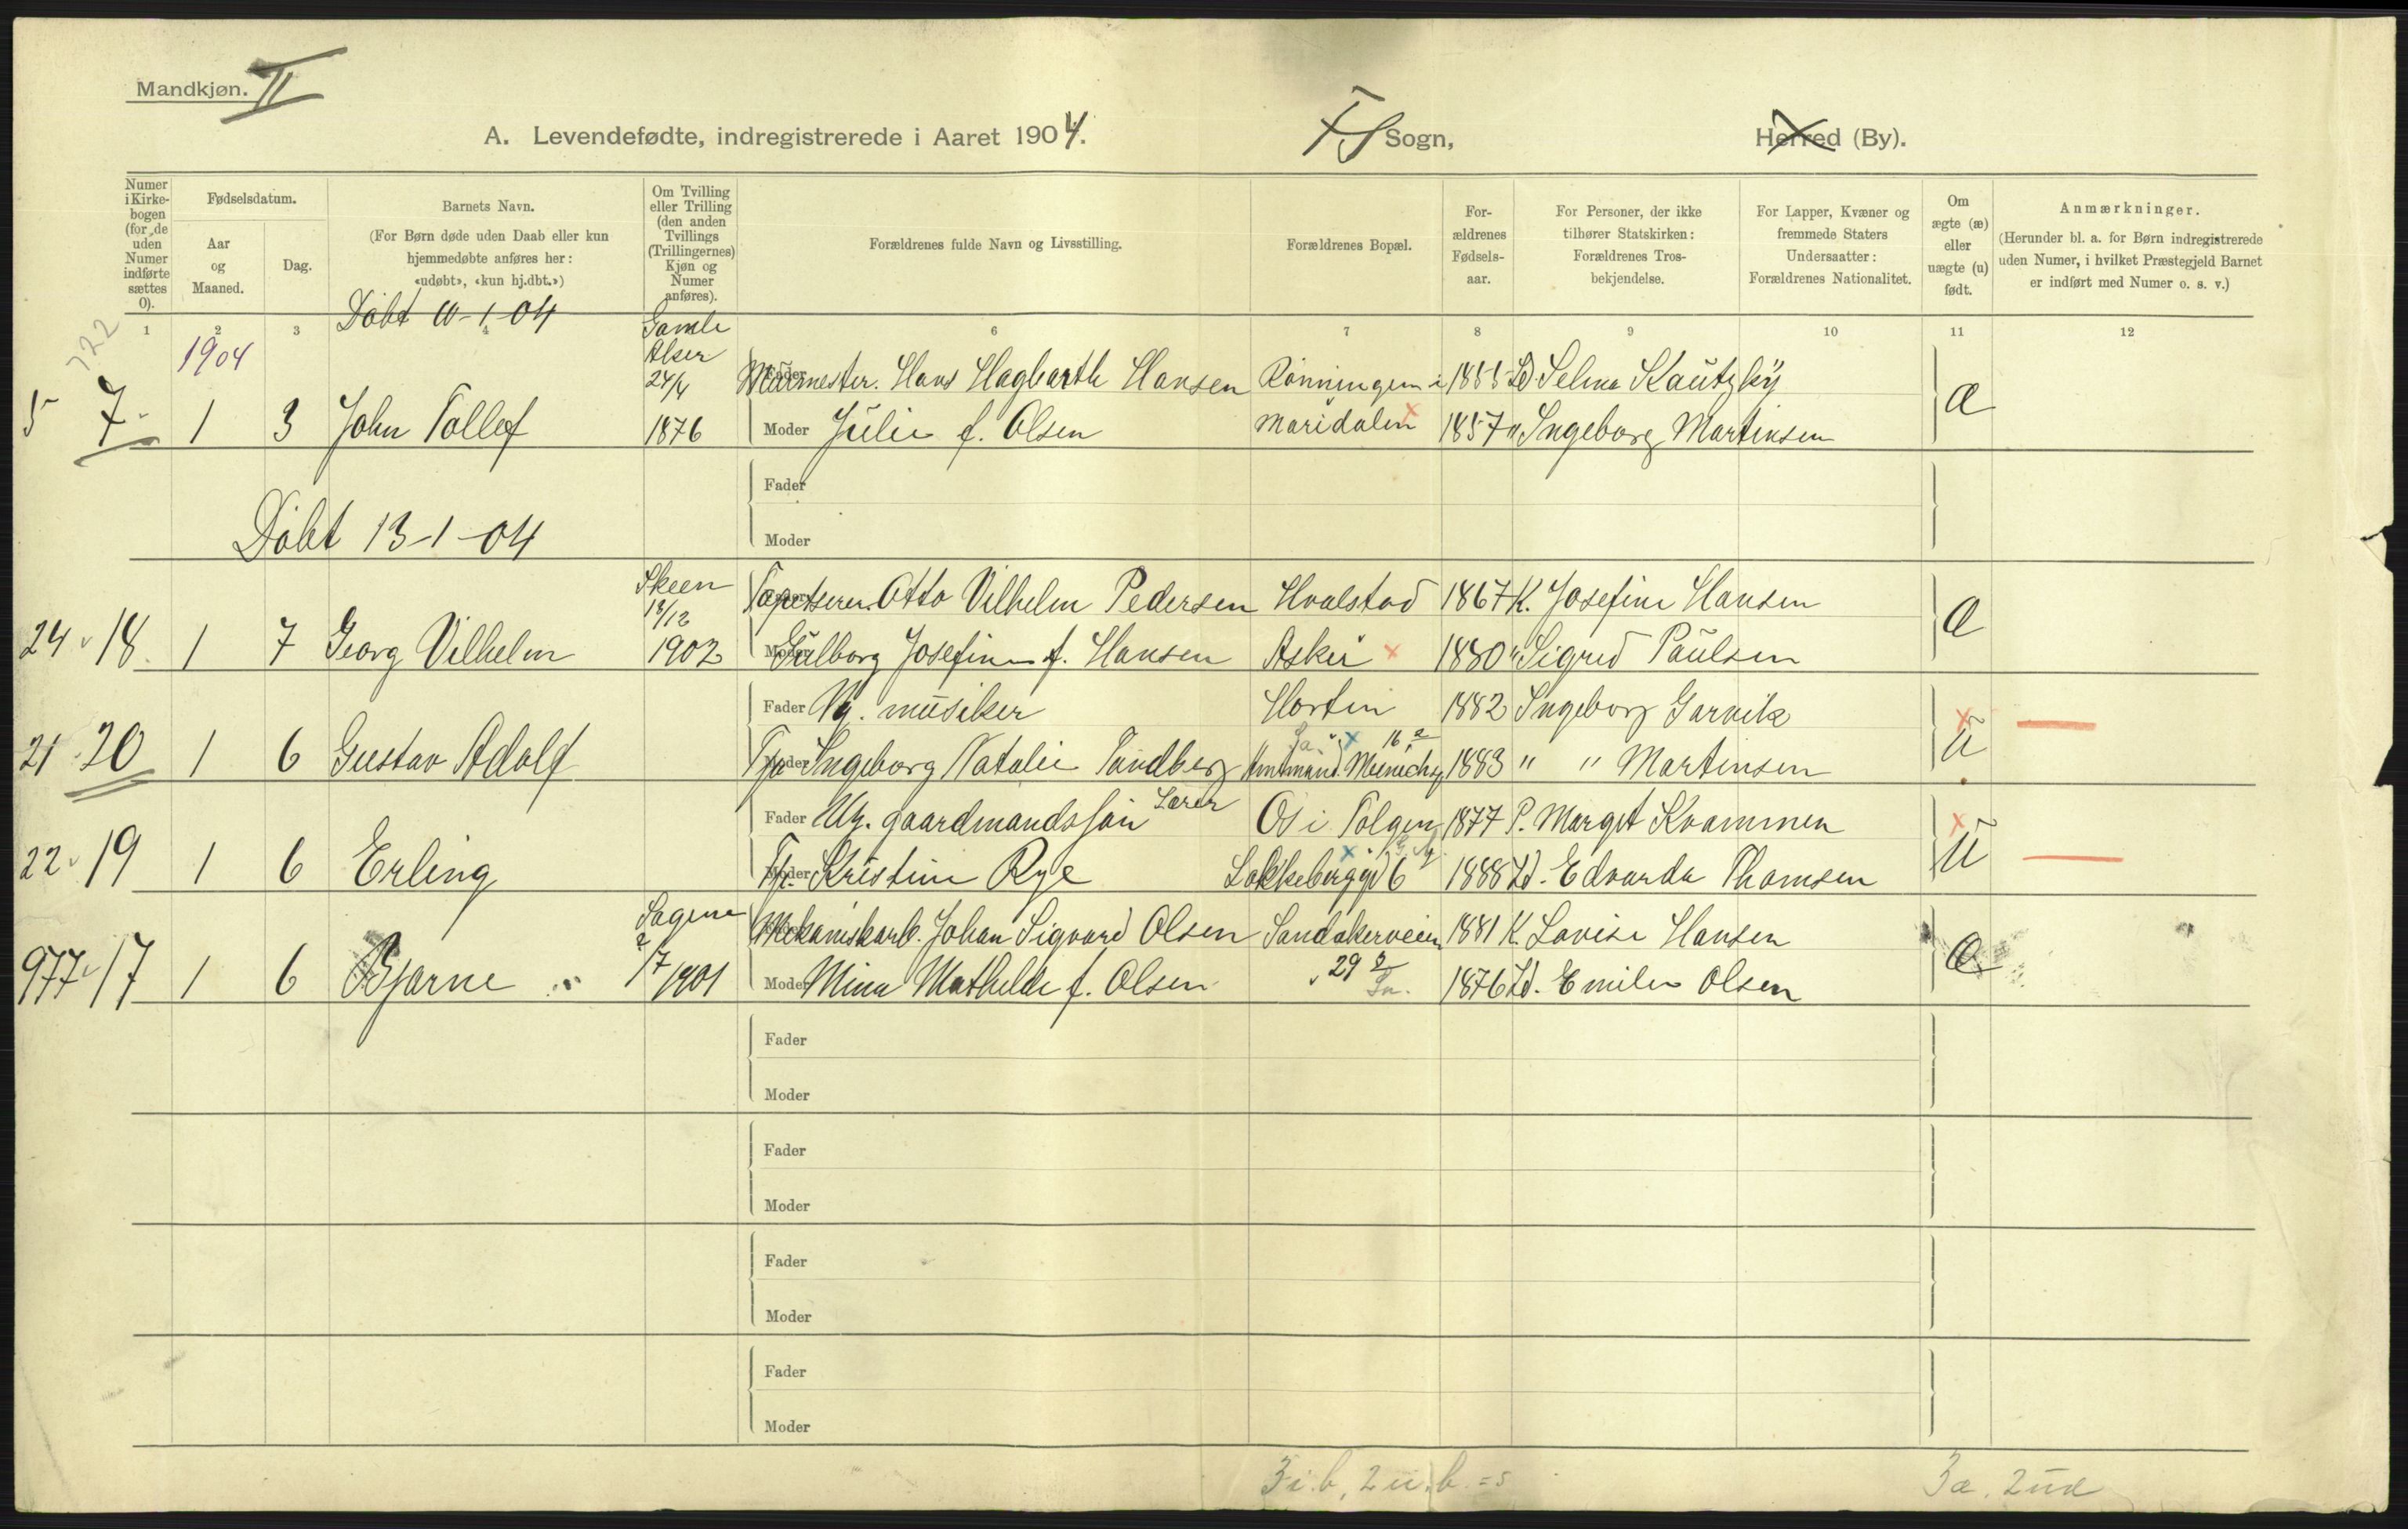 Mandkjøn. II
A. Levendefødte, indregistrerede i Aaret 1904.
FS Sogn,
Herred (By).
Numer i Kirkebogen (for de uden Numer indførte sættes 0).
Fødselsdatum.
Aar og Maaned.
Dag.
Barnets Navn.
(For Børn døde uden Daab eller kun hjemmedøbte anføres her: «udøbt», «kun hj.dbt.»)
Om Tvilling eller Trilling (den anden Tvillings (Trillingernes) Kjøn og Numer anføres).
Forældrenes fulde Navn og Livsstilling.
Forældrenes Bopæl.
Forældrenes Fødselsaar.
For Personer, der ikke tilhører Statskirken: Forældrenes Trosbekjendelse.
For Lapper, Kvæner og fremmede Staters Undersaatter: Forældrenes Nationalitet.
Om ægte (æ) eller uægte (u) født.
Anmærkninger.
(Herunder bl. a. for Børn indregistrerede uden Numer, i hvilket Præstegjeld Barnet er indført med Numer o. s. v.)
1 2 3 4 6 7 8 9 10 11 12
Døbt 10-1-04
722
1904
Gamle Aker 24/4 Murmester. Hans Hagbarth Hansen Rønningen i 1855 Ld. Selma Kautzky
5 7 1 3 John Tollef 1876 Moder Julie f. Olsen Maridalen 1857 " Ingeborg Martinsen æ
Fader
Døbt 13-1-04
Moder
Skeen 18/12 Tapetserer Otto Vilhelm Pedersen Hvalstad 1867 K. Josefine Hansen
24 18 1 7 Georg Vilhelm 1902 Gulborg Josefine f. Hansen Asker 1880 " Sigrid Paulsen æ
Fader Ug. musiker Horten 1882 Ingeborg Garvik
Ja. 16 2
21 20 1 6 Gustav Adolf Tje Ingeborg Natalie Tandberg Amtmand Meinichsg 1883 " " Martinsen u
Fader Ug. gaardmandssøn Lærer Os i Tolgen 1877 P. Margit Kvammen
22 19 1 6 Erling Tje. Kristine Rye Løkkeberggd 6 1888 Ld. Edvarda Thomsen u
Sagene Mekaniskarb. Johan Sigvard Olsen Sandakerveien 1881 K. Lovise Hansen
977 17 1 6 Bjarne 2/7 1901 Moder Mina Mathilde f. Olsen 29 2 1876 Ld. Emilie Olsen æ
Fader
Moder
Fader
Moder
Fader
Moder
Fader
Moder
3 i. b, 2 u. b. = 5
3 æ. 2 uæ